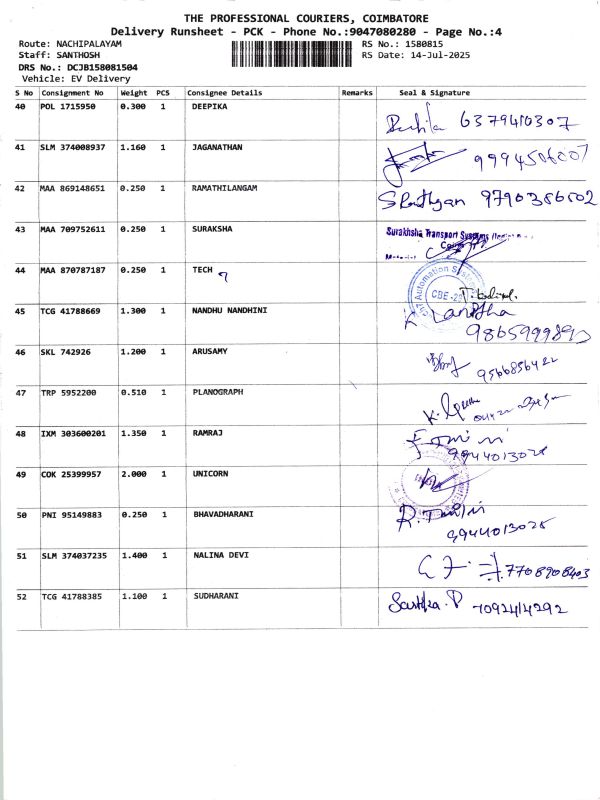 THE PROFESSIONAL COURIERS, COIMBATORE
Delivery Runsheet - PCK - Phone No.:9047080280 - Page No.:4
Route: NACHIPALAYAM
RS No.: 1580815
Staff: SANTHOSH
RS Date: 14-Jul-2025
DRS No.: DCJB158081504
Vehicle: EV Delivery
S No Consignment No Weight PCS Consignee Details Remarks Seal & Signature
40 POL 1715950 0.300 1 DEEPIKA 6379410307
41 SLM 374008937 1.160 1 JAGANATHAN 9994506007
42 MAA 869148651 0.250 1 RAMATHILANGAM 9790386602
43 MAA 709752611 0.250 1 SURAKSHA Surakhsha Transport Systems
44 MAA 870787187 0.250 1 TECH Automation CBE
45 TCG 41788669 1.300 1 NANDHU NANDHINI
46 SKL 742926 1.200 1 ARUSAMY 9566856422
47 TRP 5952200 0.510 1 PLANOGRAPH
48 IXM 303600201 1.350 1 RAMRAJ 9944013028
49 COK 25399957 2.000 1 UNICORN
50 PNI 95149883 0.250 1 BHAVADHARANI 9944013028
51 SLM 374037235 1.400 1 NALINA DEVI 7708908403
52 TCG 41788385 1.100 1 SUDHARANI